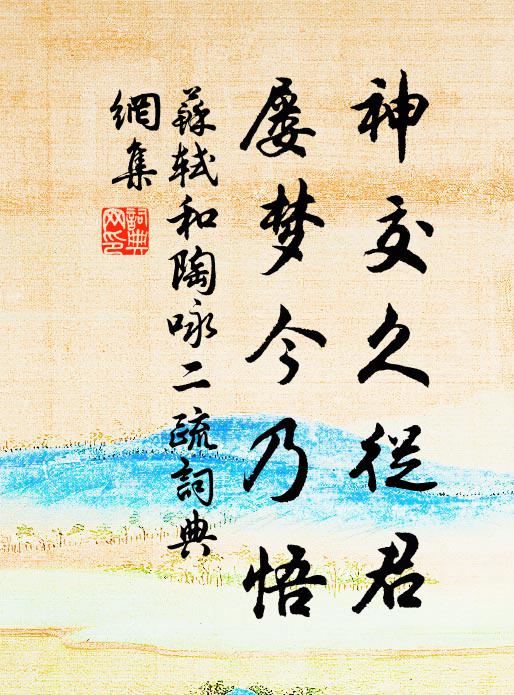 神交久從君
屡梦今乃悟
蘇軾和陶咏二疏詞典
網集
詞典
网印